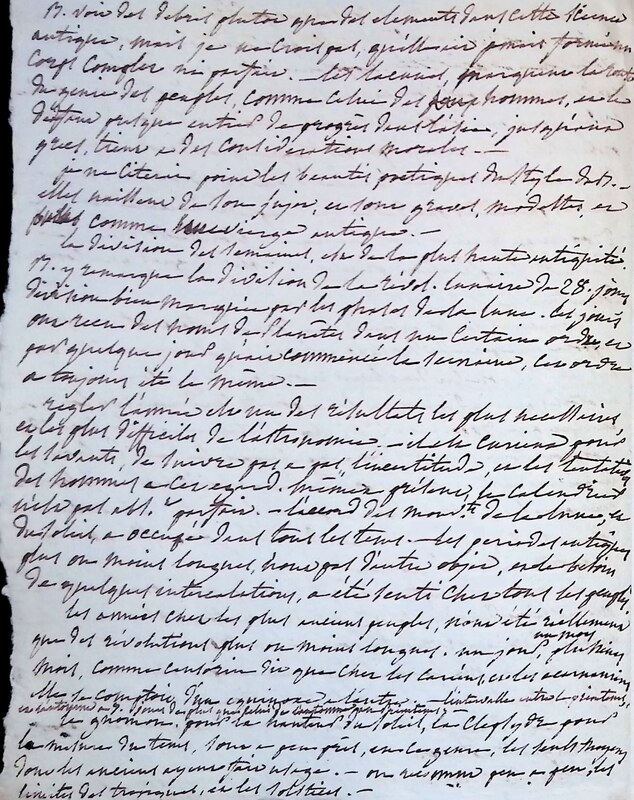 B. voit des débris plutôt que des elements dans cette science
antique, mais je ne crois pas, qu'elle ait jamais formé un
corps complet ni parfait. — les lacunes, marquent la route
du genie des peuples, comme celui des hommes, et le
défaut presque entier de progrès dans l'asie, jusqu'aux
grecs, tient a des considérations morales. —
je ne citerai point les beautés poetiques du style de B. —
elles naissent de son sujet, et sont graves, modestes, et
comme vierge antique. —
la division des semaines, est de la plus haute antiquité.
B. y remarque la division de la révol. lunaire de 28. jours
division bien marquée par les phases de la lune. Ces jours
ont reçu des noms de Planètes dans un certain ordre, et
par quelque jour qu'ait commencé la semaine, cet ordre
a toujours été le même. —
régler l'année est un des résultats les plus necessaires
et les plus difficiles de l'astronomie. — il est curieux pour
les savants, de suivre pas a pas, l'incertitude, et les tentatives
des hommes a cet egard. même a présent, le calendrier
n'est pas abst. parfait. — l'accord des mouv.ts de la lune, et
du soleil, a occupé dans tous les tems. — les periodes antiques
plus ou moins longues, n'ont pas d'autre objet, et le besoin
de quelques intercalations, a été senti chez tous les peuples.
les années chez les plus anciens peuples, n'ont été réellement
que des révolutions plus ou moins longues. un jour, un mois, plusieurs
mois, comme censorin dit que chez les cariens, et les acarnaniens
elle se comptoit, d'un equinoxe a l'autre. l'intervalle entre le printems,
et l'automne a 7. jours de plus que celui de l'automne au printems.
le gnomon, pour la hauteur du soleil, la Clepsydre pour
la mesure du tems, sont a peu près, en ce genre, les seuls moyens
dont les anciens ayent fait usage. — on reconnut peu a peu, les
limites des tropiques, et les solstices. —